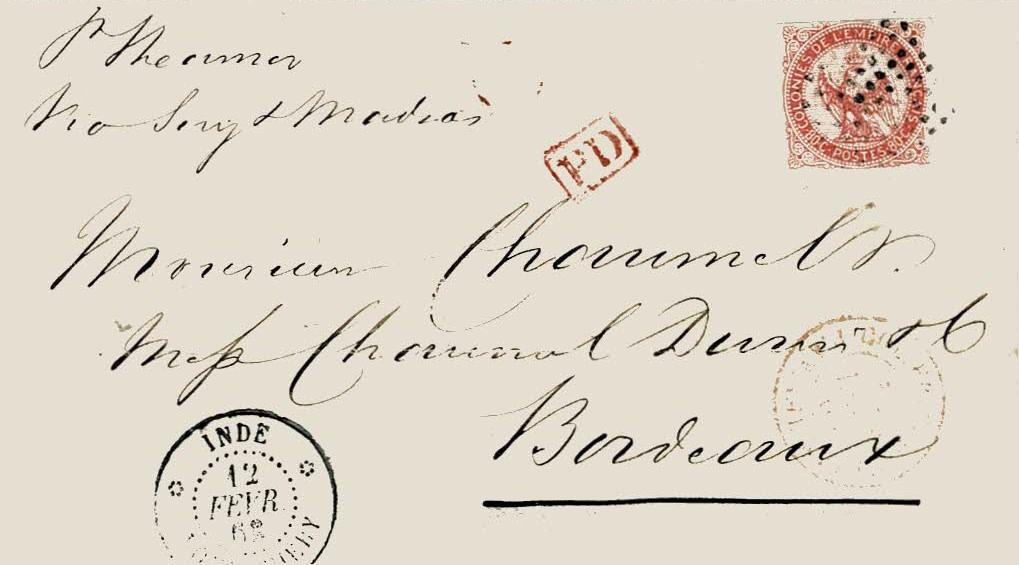 pr Steamer
Via Suez & Madras
COLONIES DE L'EMPIRE FRANÇAIS
POSTES
PD
Monsieur Chaumel
Mess Chaumel Durin & C
Bordeaux
INDE
12
FEVR
68